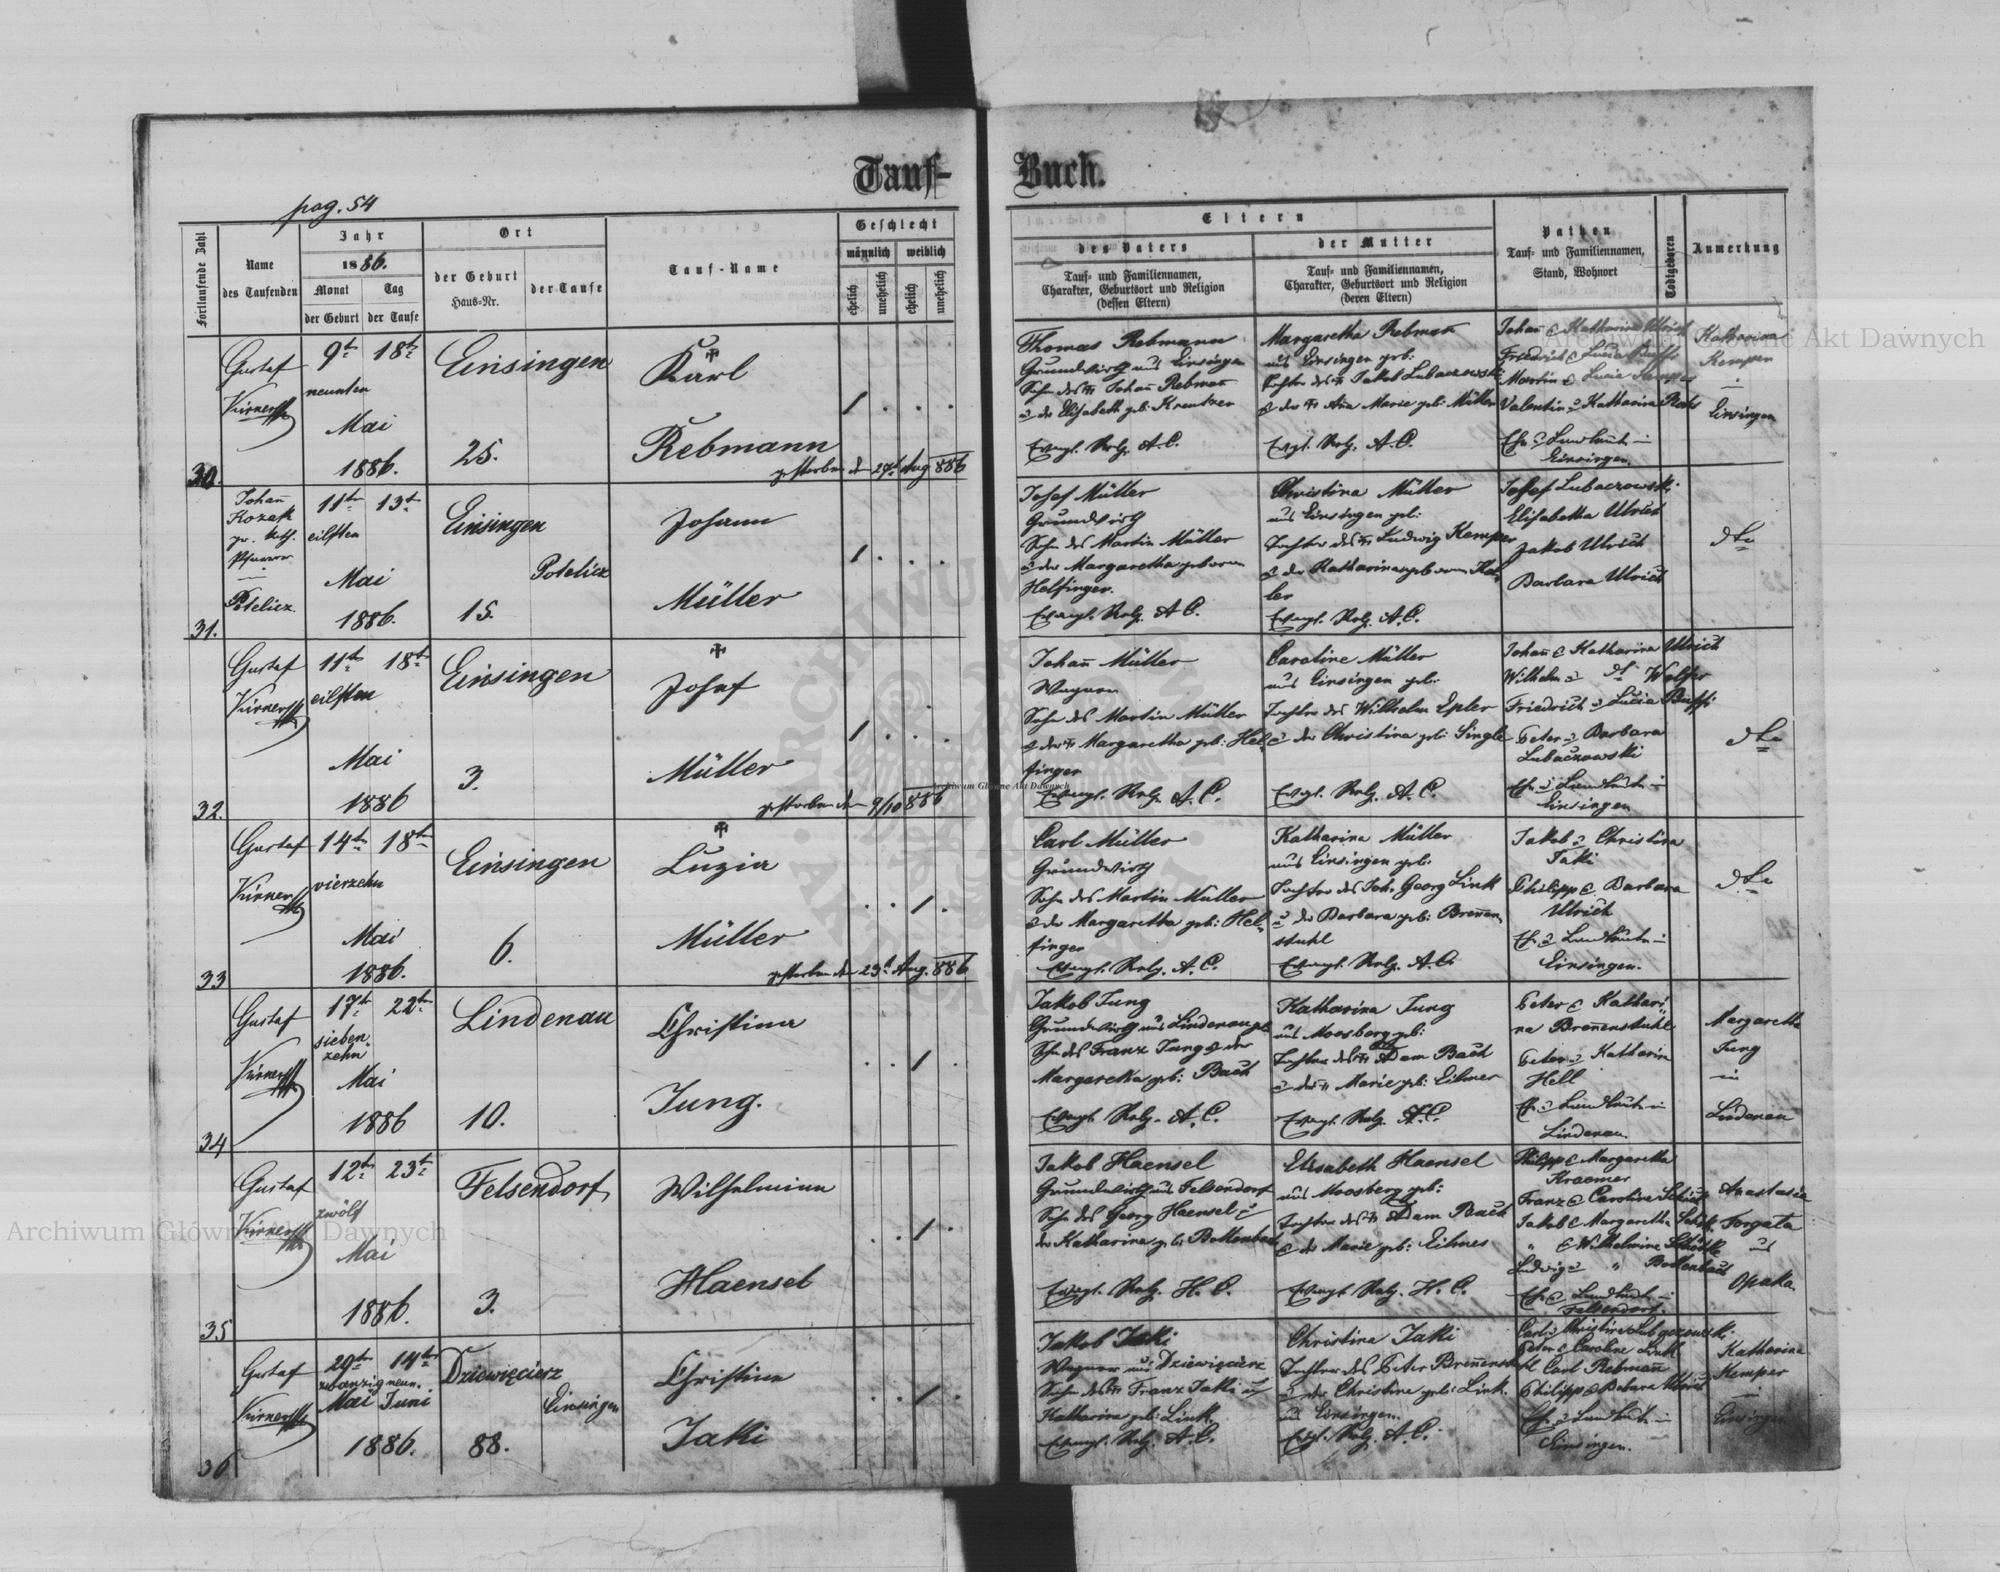 Tauf-Buch.
pag. 54
Fortlaufende Zahl
Name des Taufenden
Jahr
1886.
Monat
Tag
der Geburt
der Taufe
Ort
der Geburt
Haus-Nr.
der Taufe
Tauf-Name
Geschlecht
männlich
weiblich
ehelich
unehelich
ehelich
unehelich
Eltern
des Vaters
Tauf- und Familiennamen,
Charakter, Geburtsort und Religion
(dessen Eltern)
der Mutter
Tauf- und Familiennamen,
Charakter, Geburtsort und Religion
(deren Eltern)
Pathen
Tauf- und Familiennamen,
Stand, Wohnort
Todtgeboren
Anmerkung
30.
Gustaf
9t. 18t.
neunten
Mai
1886.
Einsingen
25.
Karl
Rebmann
gestorben den 27t Aug 886
Thomas Rebmann
Grundwirth aus Einsingen
Sohn des Johañ Rebmañ
u der Elisabeth geb: Kreutzer
Evangl. Relg. A.C.
Margaretha Rebmañ
aus Einsingen geb:
Tochter des Jakob Lubaczowski
Marie geb: Müller
Evgl. Relg. A.C.
Johañ & Katharina Ulrich
Friedrich & Lucia
Martin & Lucia Kemper
Valentin & Katharina
Einsingen.
Katharina
Kemper
in
Einsingen
31.
Johañ
Kozak
gr. kth.
Pfarrer
in
Potelicz
11t. 13t.
eilften
Mai
1886.
Einsingen
Potelicz
15.
Johann
Müller
Josef Müller
Grundwirth
Sohn des Martin Müller
u der Margaretha geboren
Helfinger.
Evangl. Relg. A.C.
Christina Müller
aus Einsingen geb:
Tochter des Ludwig Kemper
& der Katharina geboren
ler
Evangl. Relg. A.C.
Josef Lubaczowski
Elisabetha Ulrich
Jakob Ulrich
Barbara Ulrich
dto
32.
Gustaf
11t. 18t.
eilften
Mai
1886
Einsingen
3.
Josef
Müller
gestorben den 9/10 886
Johañ Müller
Wagner
Sohn des Martin Müller
& der Margaretha geb: Hel-
finger
Evangl. Relg. A.C.
Caroline Müller
aus Einsingen geb:
Tochter des Wilhelm Epler
u der Christina geb: Single
Evgl. Relg. A.C.
Johañ & Katharina Ulrich
Wilhelm u dt Walter
Friedrich u Lucia
Peter u Barbara
Lubaczowski
Einsingen
dto
33
Gustaf
14t. 18t.
vierzehn
Mai
1886.
Einsingen
6.
Luzia
Müller
gestorben den 23t Aug. 886
Carl Müller
Grundwirth
Sohn des Martin Müller
& der Margaretha geb: Hel-
finger
Evangl. Relg. A.C.
Katharina Müller
aus Einsingen geb:
Tochter des Joh. Georg Link
u der Barbara geb: Breñen-
stuhl
Evangl. Relg. A.C.
Jakob u Christina
Jaki
Philipp & Barbara
Ulrich
Einsingen.
dto
34
Gustaf
17t. 22t.
sieben-
zehn
Mai
1886
Lindenau
10.
Christina
Jung.
Jakob Jung
Grundwirth aus Lindenau
Sohn des Franz Jung & der
Margaretha geb: Bach
Evangl. Relg. A.C.
Katharina Jung
aus Moosberg geb:
Tochter des Adam Bach
u der Marie geb: Eihmer
Evangl. Relg. A.C.
Peter & Kathari-
na Breñenstuhl
Peter u Katharina
Hell
Lindenau.
Margaretha
Jung
in
Lindenau
35
Gustaf
12t. 23t.
zwölf
Mai
1886.
Felsendorf
3.
Wilhelmina
Haensel
Jakob Haensel
Grundwirth aus Felsendorf
Sohn des Georg Haensel u
der Katharina geb: Bottenbach
Evangl. Relg. H.C.
Elisabeth Haensel
aus Moosberg geb:
Tochter des Adam Bach
& der Marie geb: Eihmer
Evangl. Relg. H.C.
Philipp & Margaretha
Kraemer
Franz & Caroline
Jakob & Margaretha
" & Wilhelmine
Ludwig u " Bottenbach
Felsendorf.
Anastasia
Torgata
aus
Opaka.
36
Gustaf
29t. 14t.
zwanzig neun.
Mai Juni
1886.
Dziewięcierz
Einsingen
88.
Christina
Jaki
Jakob Jaki
Wagner aus Dziewięcierz
Sohn des Franz Jaki u
Katharina geb: Link.
Evangl. Relg. A.C.
Christina Jaki
Tochter des Peter Breñenstuhl
u der Christina geb: Link.
aus Einsingen.
Evgl. Relg. A.C.
Carl u Christina Lubaczowski
Peter & Caroline Link
Carl Rebmañ
Philipp & Barbara Ulrich
Einsingen.
Katharina
Kemper
in
Einsingen
Archiwum Główne Akt Dawnych
Archiwum Główne Akt Dawnych
Archiwum Główne Akt Dawnych